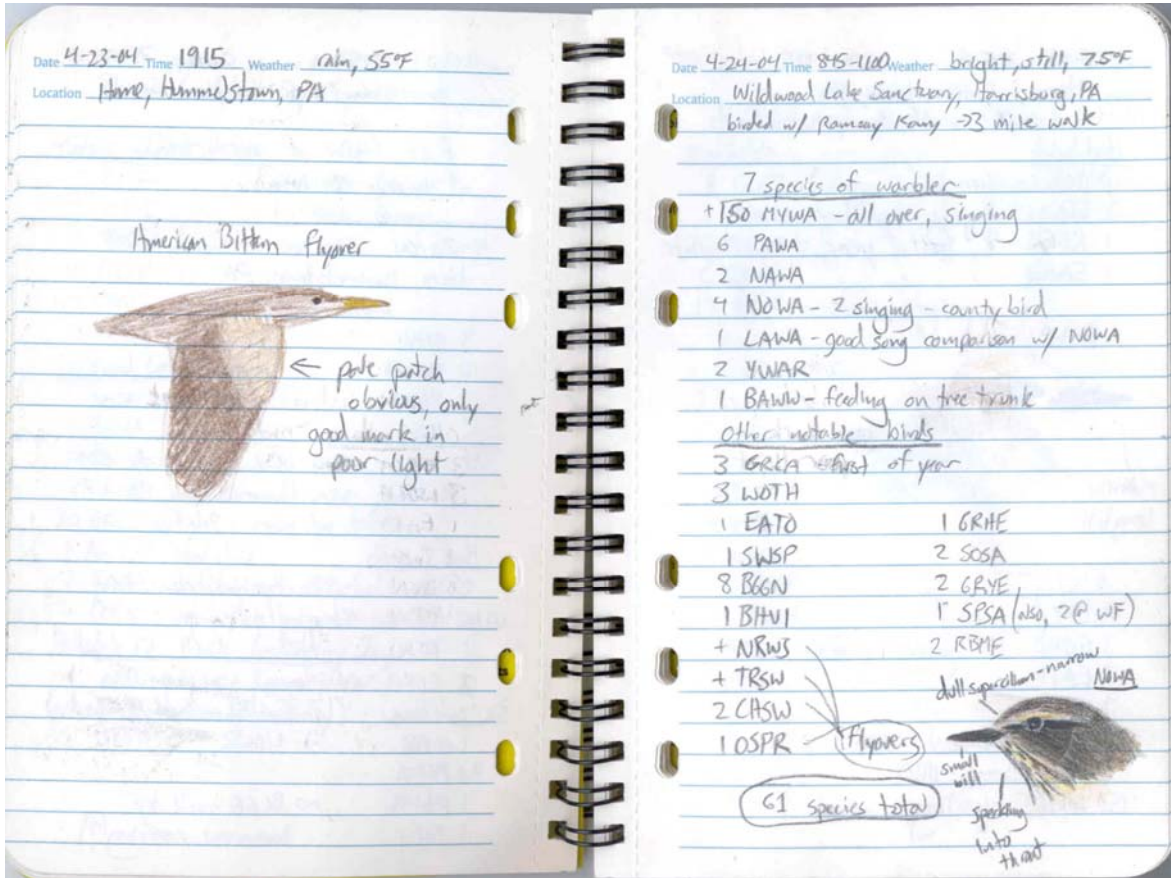 Date 4-23-04 Time 1915 Weather rain, 55°F
Location Home, Hummelstown, PA
American Bittern flyover
← pale patch
obvious, only
good mark in
poor light
Date 4-24-04 Time 845-1100 Weather bright, still, 75°F
Location Wildwood Lake Sanctuary, Harrisburg, PA
birded w/ Ramsay → 3 mile walk
7 species of warbler
+150 MYWA - all over, singing
6 PAWA
2 NAWA
4 NOWA - 2 singing - county bird
1 LAWA - good song comparison w/ NOWA
2 YWAR
1 BAWW - feeding on tree trunk
Other notable birds
3 GRCA first of year
3 WOTH
1 EATO 1 GRHE
1 SWSP 2 SOSA
8 BGGN 2 GRYE
1 BHVI 1 SPSA (also, 2 @ WF)
+ NRWS 2 RBME
+ TRSW
2 CHSW
1 OSPR
flyovers
61 species total
dull supercilium - narrow
NOWA
small
bill
speckling
into
throat